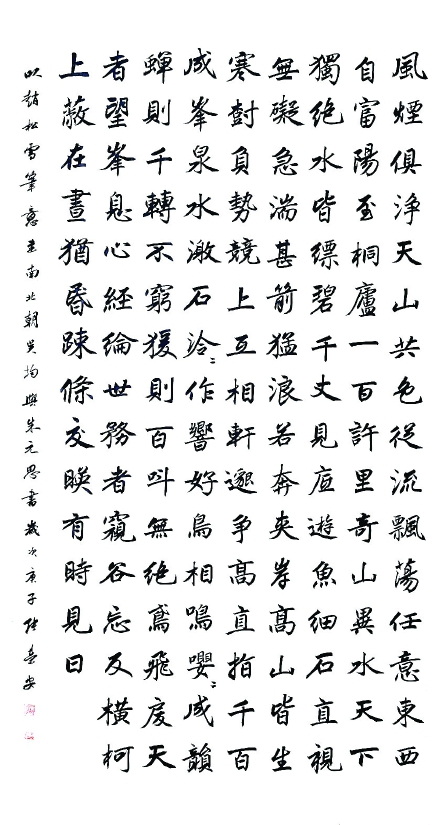 風煙俱淨天山共色從流飄蕩任意東西
自富陽至桐廬一百許里奇山異水天下
獨絕水皆縹碧千丈見底遊魚細石直視
無礙急湍甚箭猛浪若奔夾岸高山皆生
寒樹負勢競上互相軒邈爭高直指千百
成峯泉水激石泠〻作響好鳥相鳴嚶〻成韻
蟬則千轉不窮猿則百叫無絕鳶飛戾天
者望峯息心經綸世務者窺谷忘反橫柯
上蔽在晝猶昏踈條交暎有時見日
以趙松雪筆意書南北朝吳均與朱元思書歲次庚子